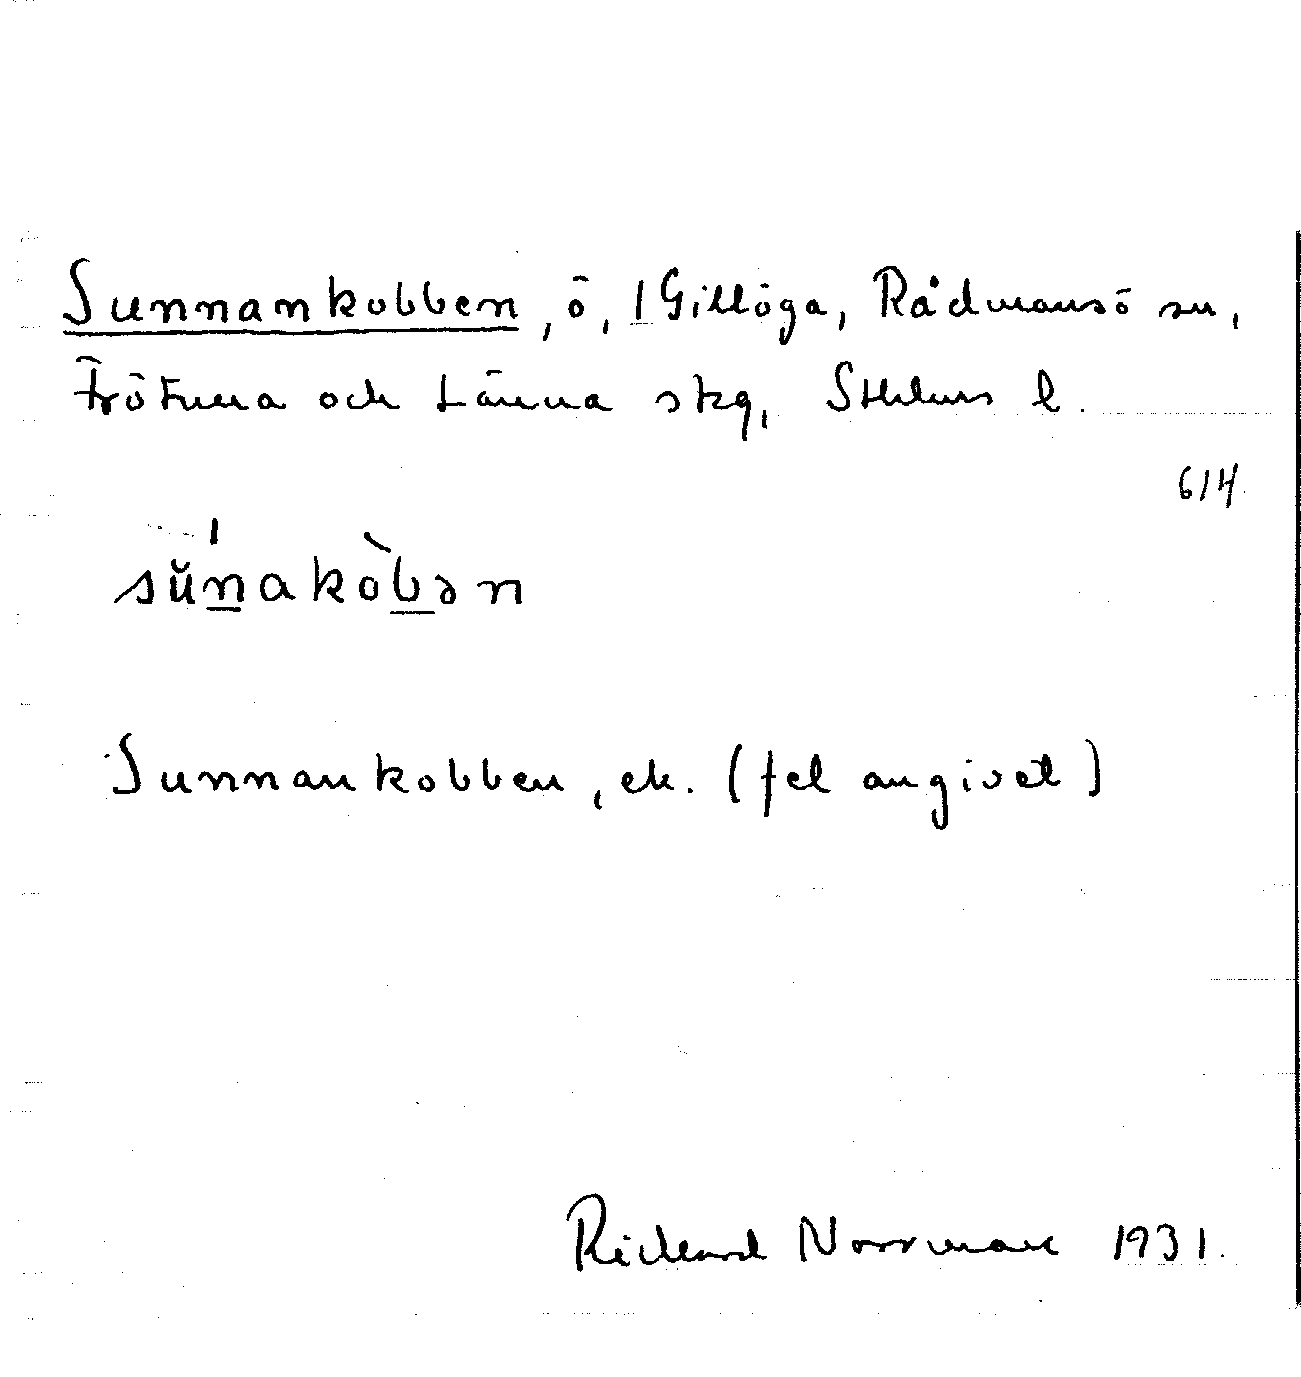 Sunnankobben, ö, 1 Gillöga, Rådmansö sn,
Frötuna och Länna skg, Sthlms l.
614
sŭ́n̲akòb̲ən
Sunnankobben, ek. (fel angivet)
Richard Norrman 1931.